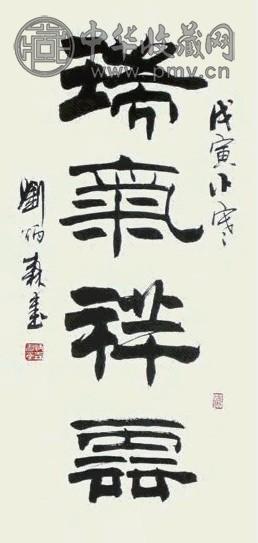 中华收藏网
www.pmv.cn
戊寅小寒
瑞氣祥雲
劉炳森書